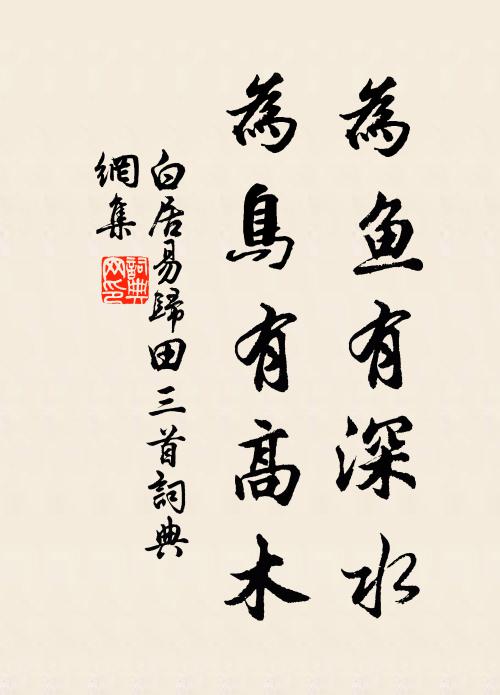 為鱼有深水
為鳥有高木
白居易歸田三首詞典
網集
詞典
网印